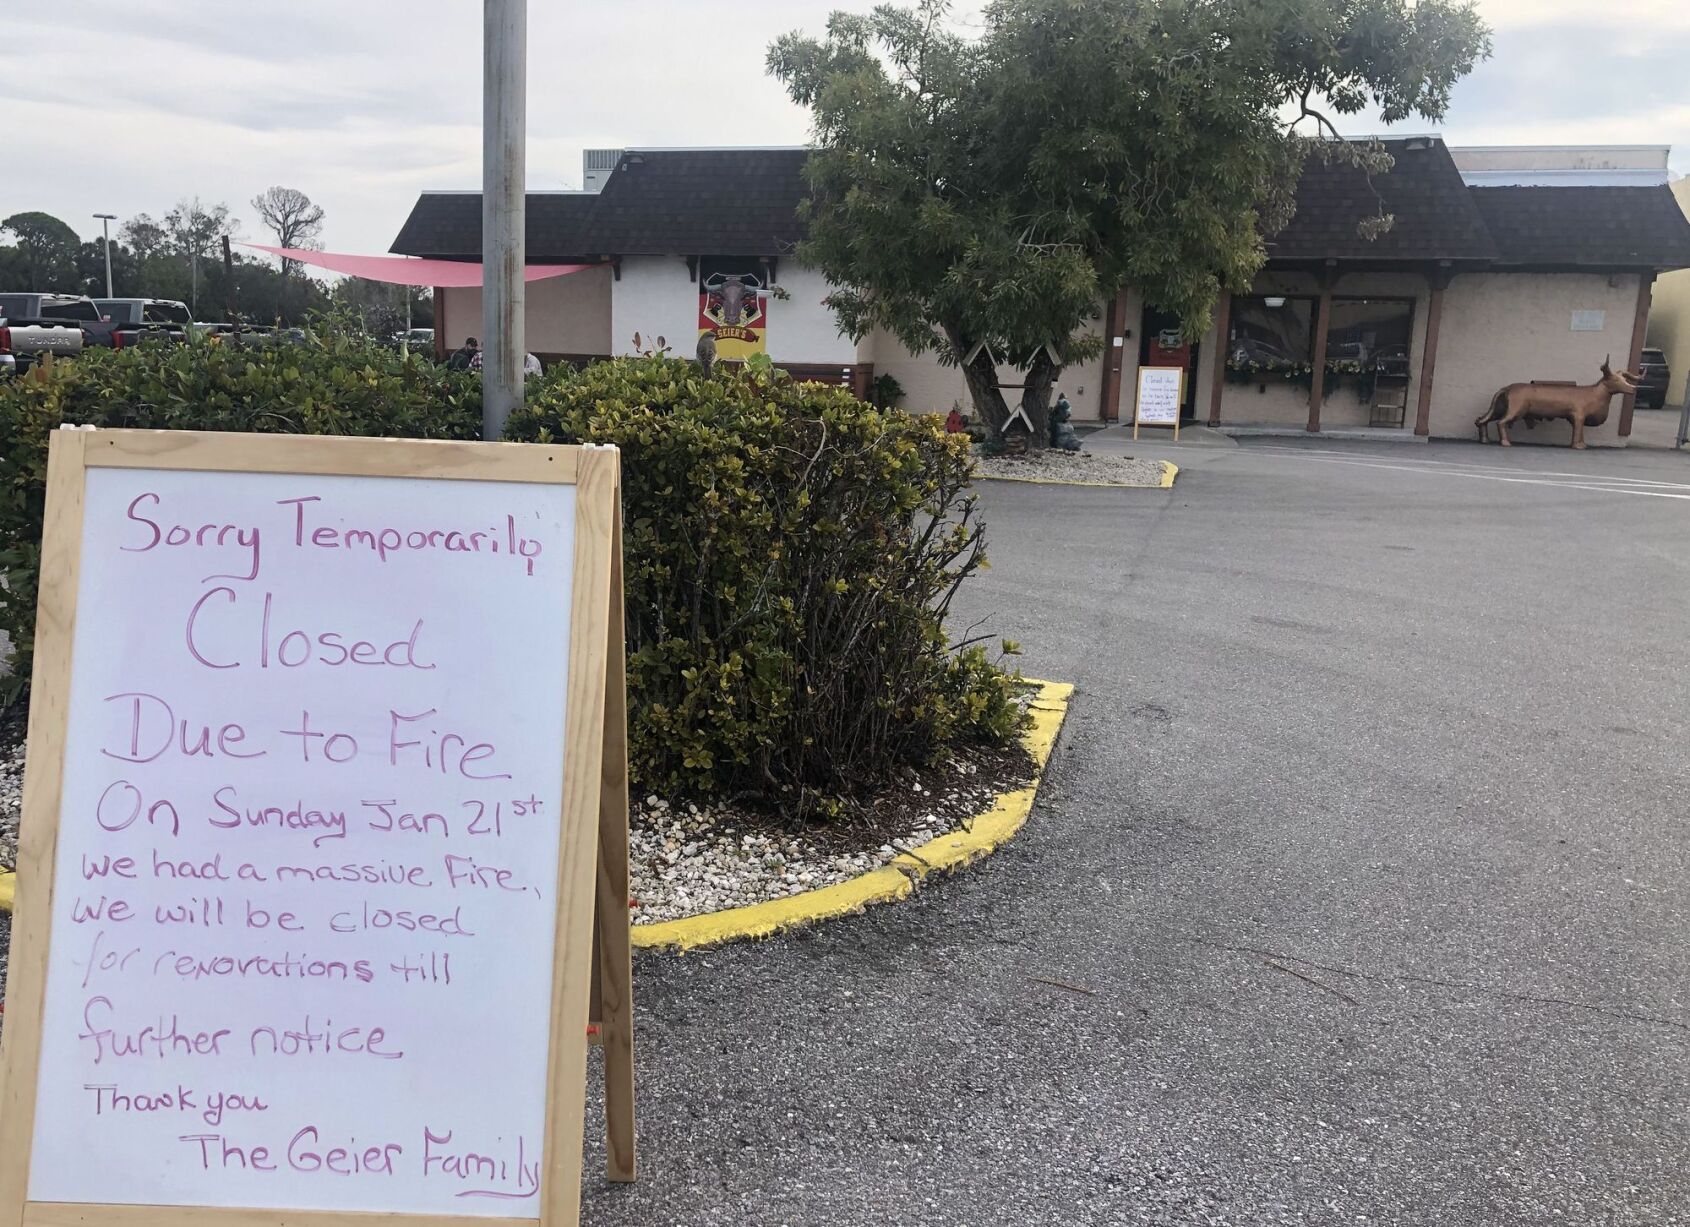 Sorry Temporarily
Closed
Due to Fire
On Sunday Jan 21st
we had a massive Fire,
we will be closed
for renovations till
further notice
Thank you
The Geier Family
GEIER'S
TUNDRA
Closed due